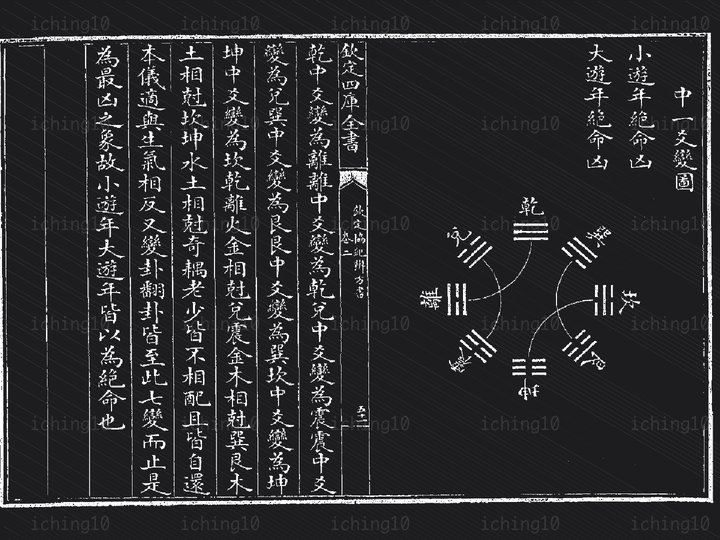 中一爻變圖
小遊年絶命凶
大遊年絶命凶
乾
兌
巽
離
坎
震
艮
坤
欽定四庫全書
欽定協紀辨方書
卷二
五十二
乾中爻變為離離中爻變為乾兌中爻變為震震中爻
變為兌巽中爻變為艮艮中爻變為巽坎中爻變為坤
坤中爻變為坎乾離火金相尅兌震金木相尅巽艮木
土相尅坎坤水土相尅奇耦老少皆不相配且皆自還
本儀適與生氣相反又變卦翻卦皆至此七變而止是
為最凶之象故小遊年大遊年皆以為絶命也